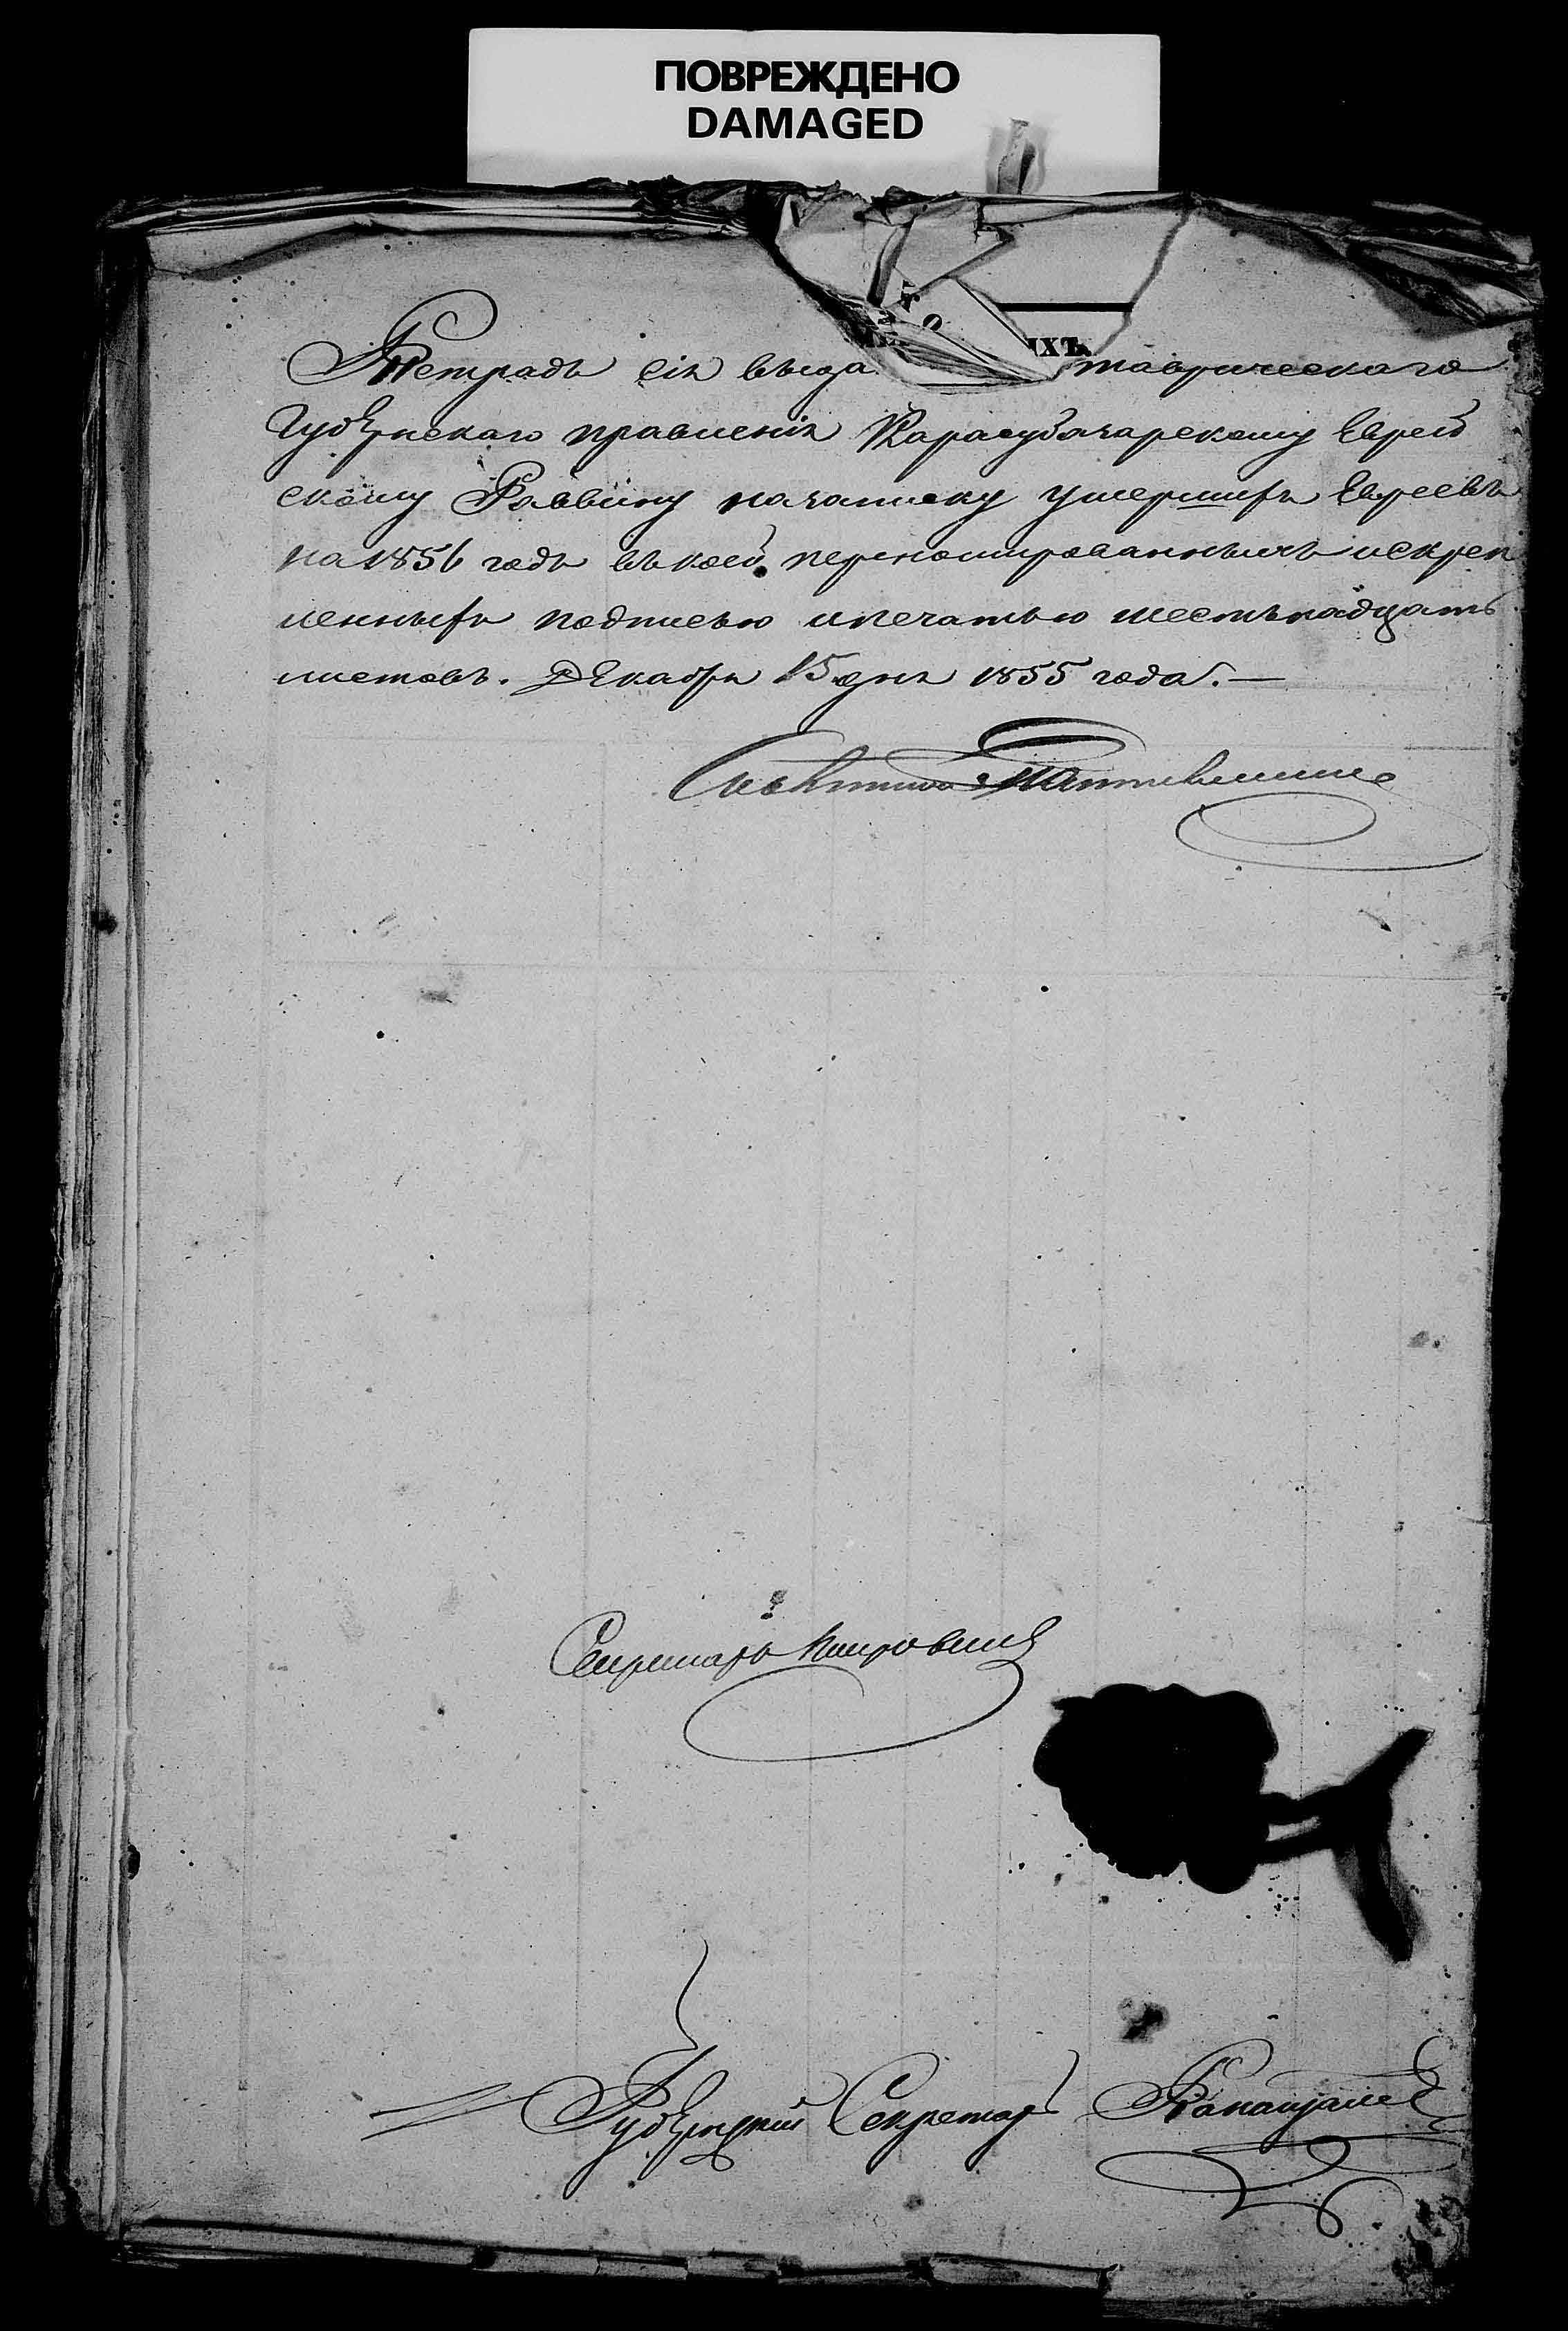 ПОВРЕЖДЕНО
DAMAGED
ІХЪ
Тетрадь сія выда таврическаго
Губернскаго правленія Карасубазарскому Еврей
скому Раввину на записку умершихъ Евреевъ
на 1856 годъ въ коей перенумерованныхъ и скреп
ленныхъ подписью и печатью шестьнадцать
листовъ. Декабря 15 дня 1855 года. —
Советникъ
Секретарь
Губернскій Секретарь